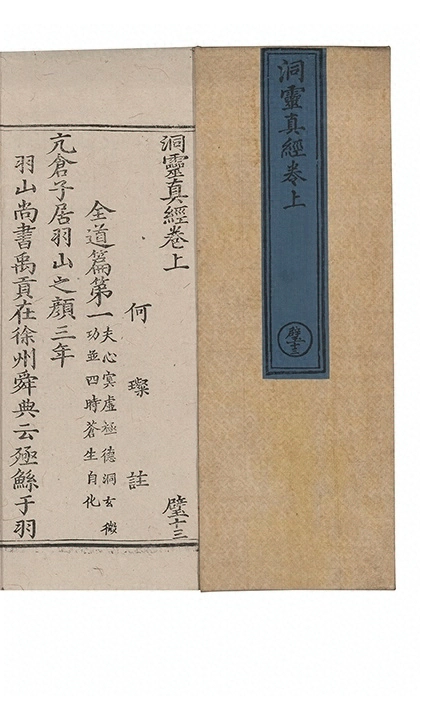 洞靈真經卷上
璧十三
洞靈真經卷上
何璨註 璧十三
全道篇第一
夫心冥虛極德洞玄微
功並四時蒼生自化
亢倉子居羽山之顏三年
羽山尚書禹貢在徐州舜典云殛鯀于羽